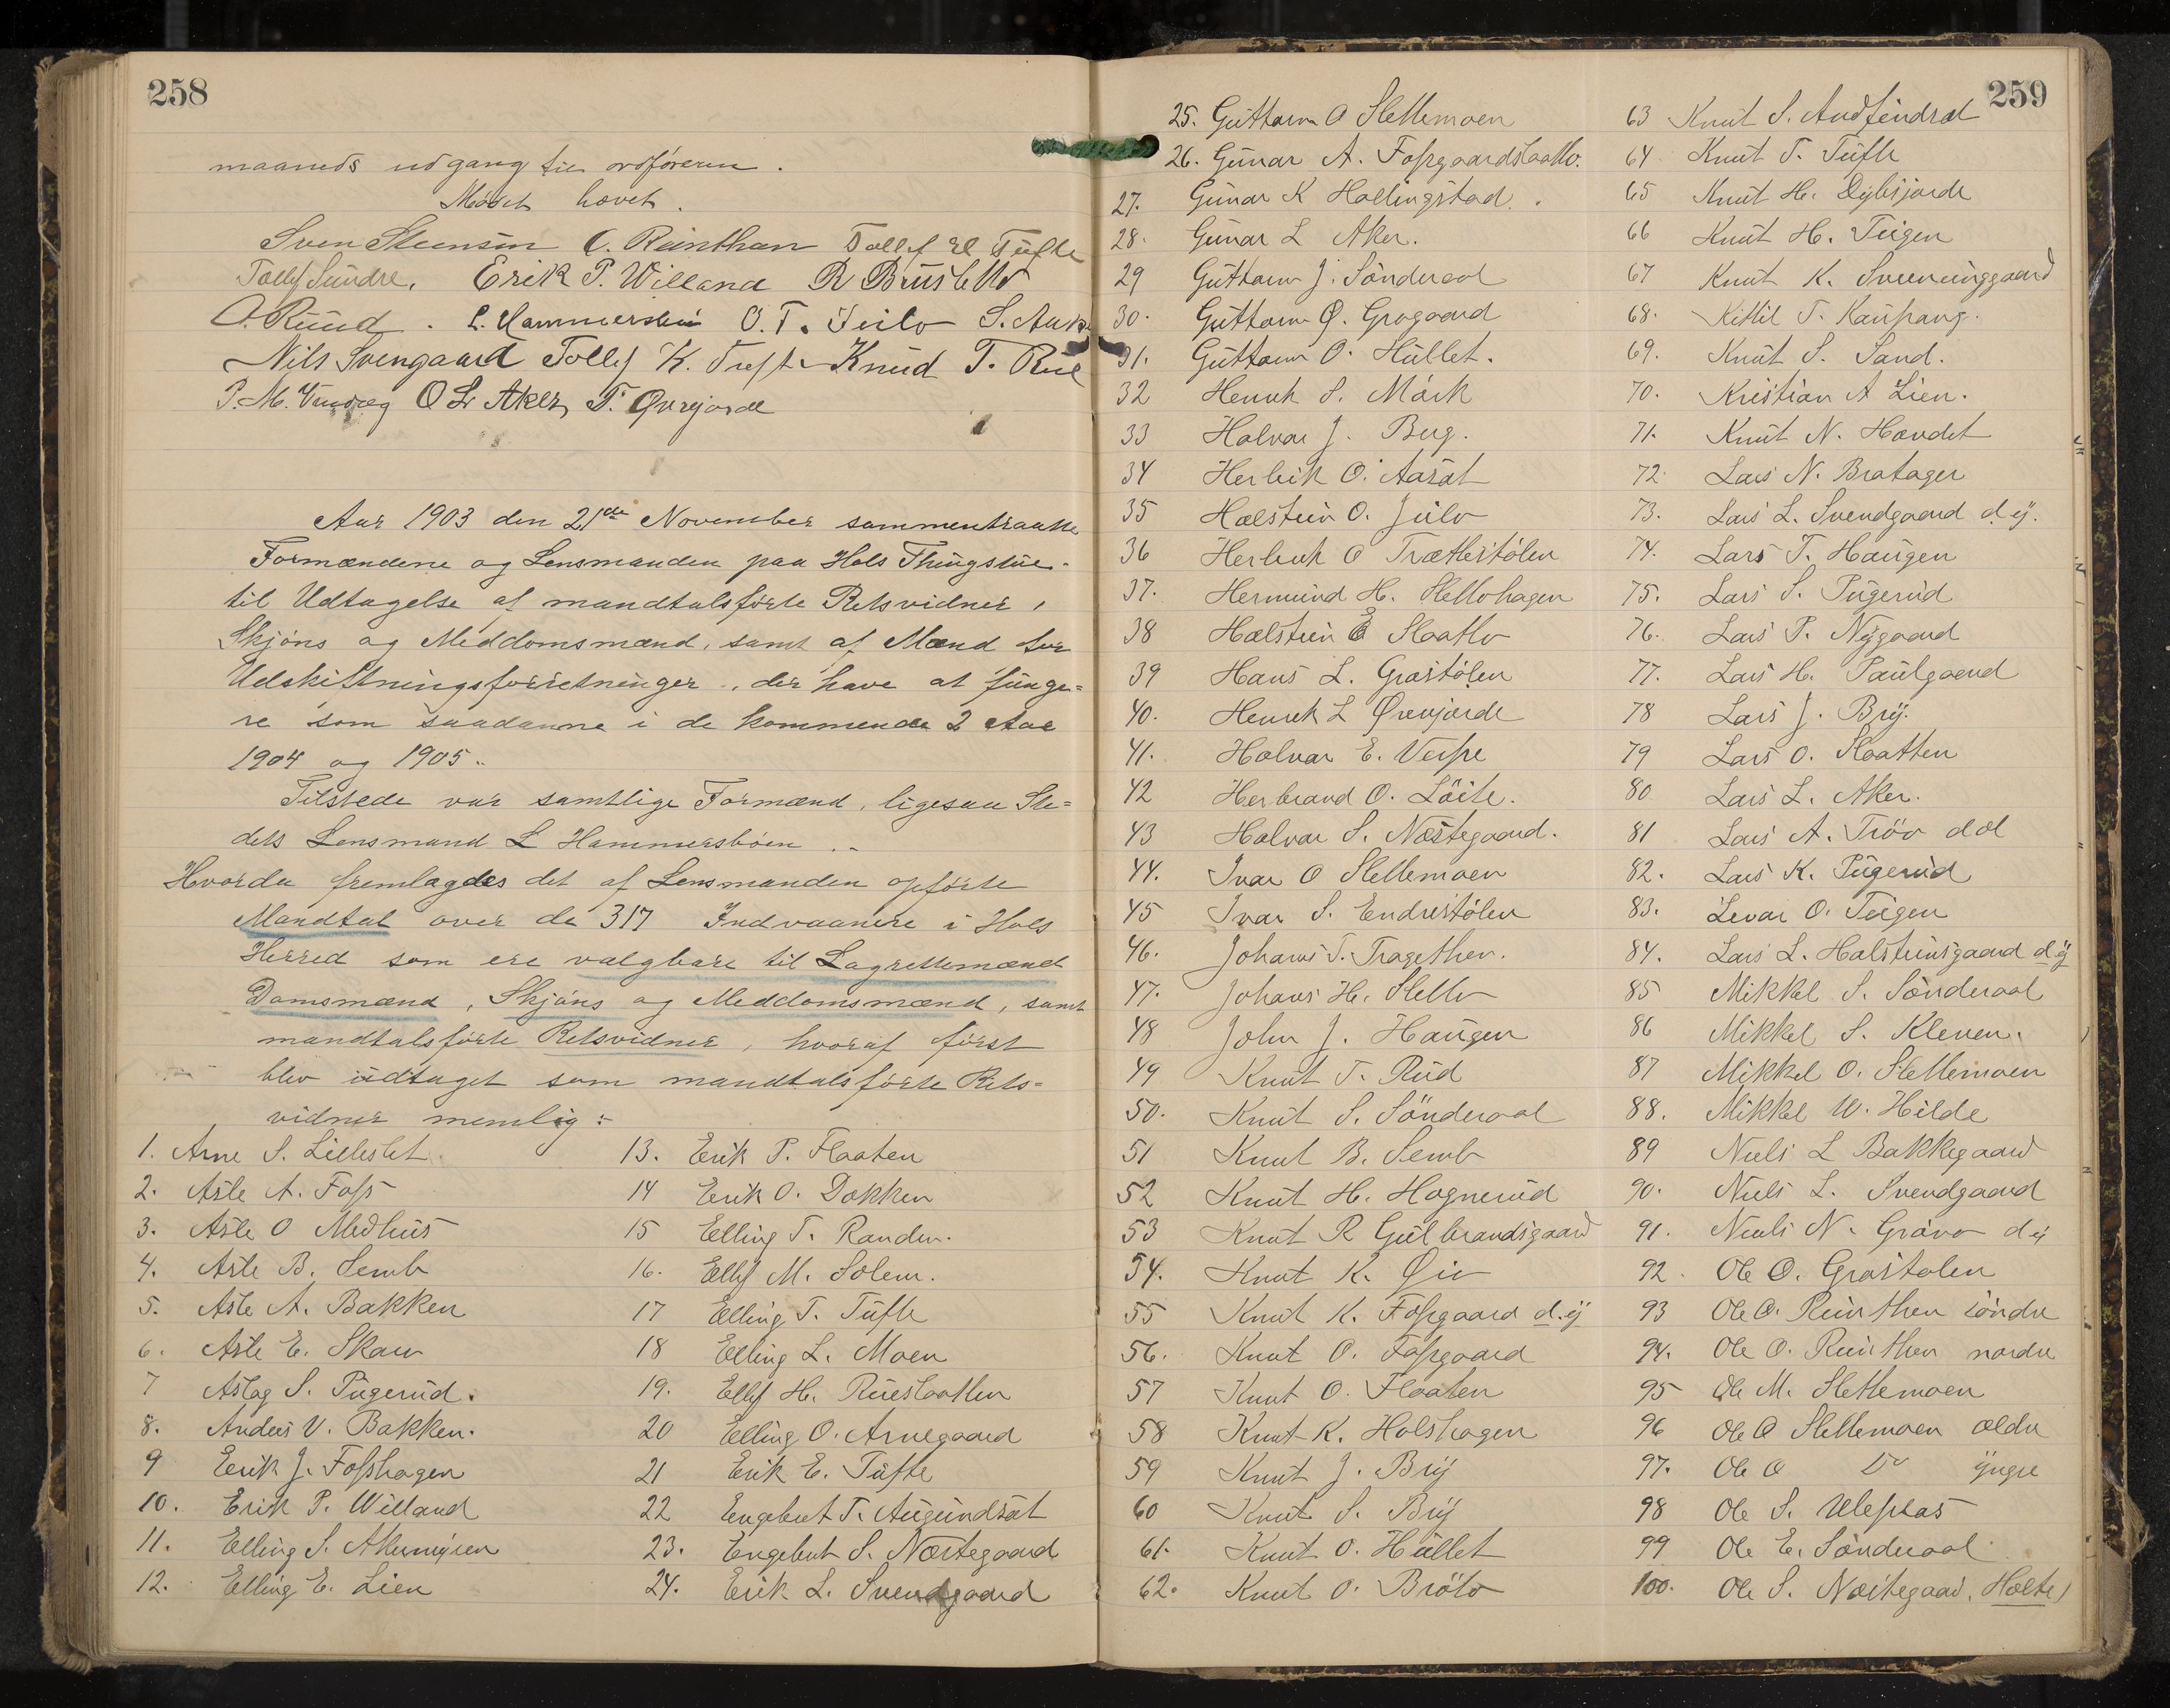 258
maaneds udgang til ordføreren.
Mødet hævet.
Sven Steensen O. Reinthan Tollef El Tufte
Tollef Sundre. Erik P. Willand R Bruslette
O. Ruud. L. Hammersbøin O. T. Juilo S. Auk
Nils Svengaard Tollef K. Tufte Knud T. Rue
P. M. O L Aker, T. Øvrejorde
Aar 1903 den 21de November sammentraatte
Formændene og Lensmanden paa Hols Thingstue
til Udtagelse af mandtalsførte Retsvidner,
Skjøns og Meddomsmænd, samt af Mænd for
Udskiftningsforretninger, der have at funge=
re som saadanne i de kommende 2 Aar
1904 og 1905.
Tilstede var samtlige Formænd, ligesaa Ste=
dets Lensmand L Hammersbøen.
Hvorda fremlagdes det af Lensmanden opførte
Mandtal over de 317 Indvaanere i Hols
Herred som ere valgbare til Lagrettemænd
Domsmænd, Skjøns og Meddomsmænd, samt
mandtalsførte Retsvidner, hvoraf først
blev udtaget som mandtalsførte Rets=
vidner nemlig:
1. Arne S. Lilleslet
2. Asle A. Foss
3. Asle O Medhus
4. Asle B. Semb
5. Asle A. Bakken
6. Asle E. Skaw
7 Aslag S. Pugerud.
8. Anders V. Bakken.
9 Erik J. Fosshagen
10. Erik P. Willand
11. Elling S. Akermyren
12. Elling E. Lien
13. Erik P. Flaaten
14 Erik O. Dokken
15 Elling T. Randen.
16. Ellef M. Solem.
17 Elling T. Tufte
18 Elling L. Moen
19. Ellef H. Rueslaatten
20 Elling O. Arnegaard
21 Erik E. Tufte
22 Engebret T. Augundsøt
23. Engebret S. Næstegaard
24. Erik L. Svendgaard
259
25. Guttorm O Slettemoen
26. Gunar A. Fossgaardslaatto.
27. Gunar K Hallingstad.
28. Gunar L Aker.
29 Guttorm J. Sønderaal
30. Guttorm O. Grøgaard
31. Guttorm O. Hullet.
32 Henrik S. Mørk
33 Halvar J. Berg.
34 Herleik O. Aasøt
35 Hælstein O. Juilo
36 Herleik O Træthestølen
37. Hermund H. Slettohagen
38 Hælstein E Slaatto
39 Hans L. Grøstølen
40. Henrik L Øvrejorde
41. Halvar E. Vesse
42 Herbrand O. Løite.
43 Halvar S. Næstegaard.
44. Ivar O Slettemoen
45 Ivar S. Endrestølen
46. Johans T. Tragethen.
47. Johans H. Sletto
48 John J. Haugen
49 Knut T. Rud
50. Knut S. Sønderaal
51 Knut B. Semb
52 Knut H. Hagnerud
53 Knut R Gulbrandsgaard
54. Knut K. Øio
55 Knut K. Fossgaard d.y
56. Knut O. Fossgaard
57 Knut O. Flaaten
58 Knut K. Holshagen
59 Knut J. Bry
60 Knut S. Bry
61. Knut O. Hullet
62. Knut O. Brøto
63 Knut S. Audfindsøl
64. Knut T. Tufte
65 Knut H. Dybsjorde
66 Knut H. Teigen
67 Knut K. Sveeninggaard
68. Kittil T. Kaupang.
69. Knut S. Sand.
70. Kristian A Lien.
71. Knut N. Hovdet
72. Lars N. Bratager
73. Lars L. Svendgaard d. y.
74. Lars T. Haugen
75. Lars S. Pugerud
76. Lars P. Nygaard
77. Lars H. Paulgaard
78 Lars J. Bry.
79 Lars O. Slaatten
80 Lars L. Aker.
81 Lars A. Trøo
82. Lars K. Pugerud
83. Levar O. Teigen
84. Lars L. Halsteinsgaard d y
85 Mikkel S. Sønderaal
86 Mikkel S. Kleven.
87 Mikkel O. Slettemoen
88. Mikkel W. Hilde
89 Niels L Bakkegaard
90. Niels L. Svendgaard
91. Niels N. Grøvo d y
92. Ole O. Grøstølen
93 Ole O. Reinthen søndre
94. Ole O. Reinthen nordre
95 Ole M. Slettemoen
96 Ole O Slettemoen ældre
97. Ole O Do yngre
98 Ole S. Ulesslås
99 Ole E. Sønderaal
100. Ole S. Næstegaard, Holte)